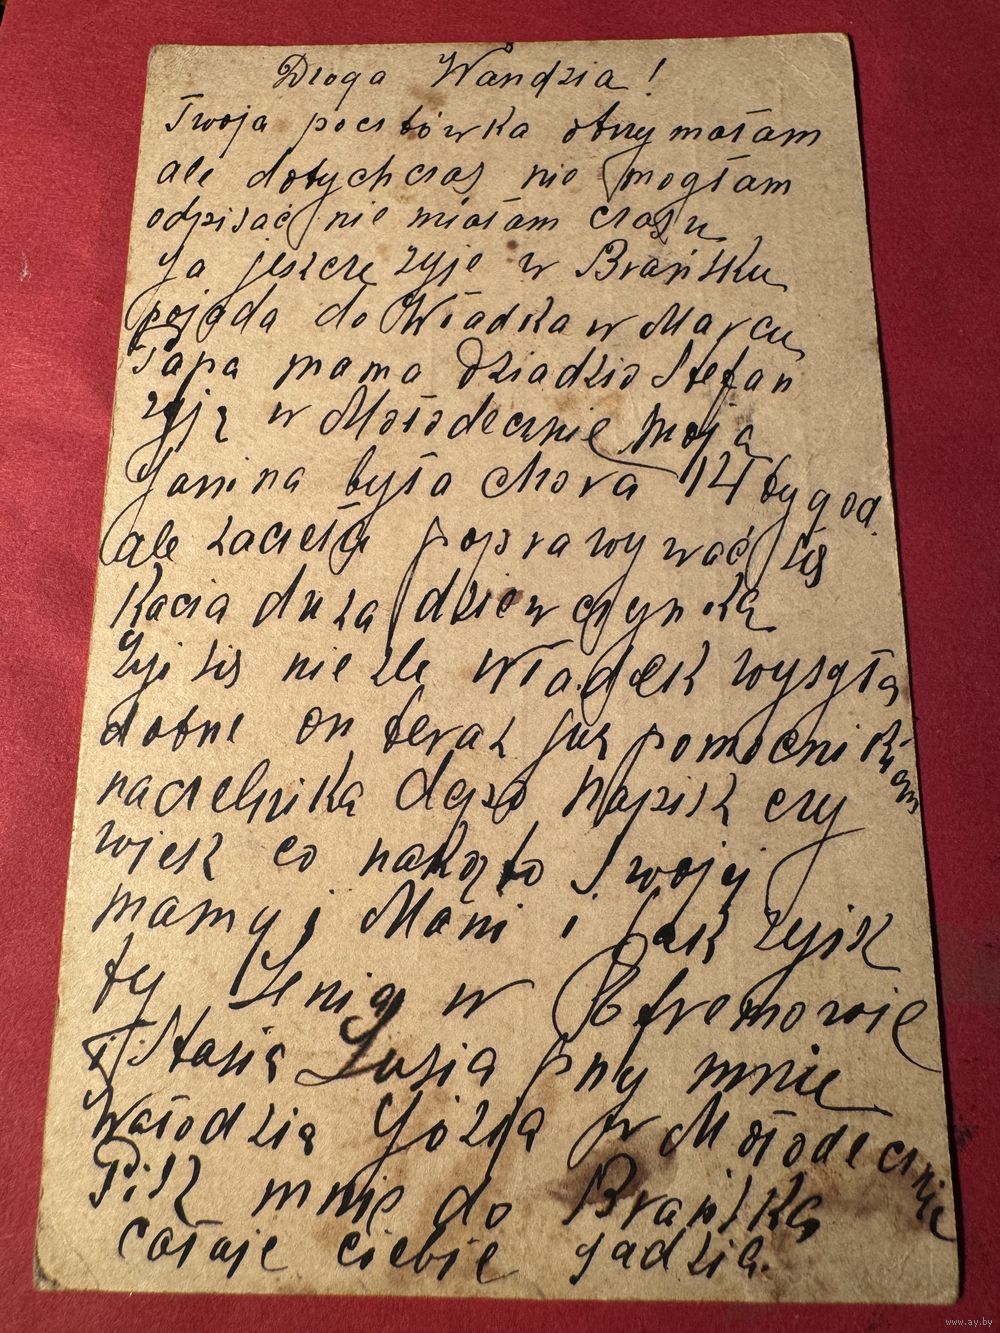 Droga Wandzia!
Twoja pocztówka otrzymałam
ale dotychczas nie mogłam
odpisać nie miałam czasu
Ja jeszcze żyje w Brańsku
pojada do Władka w Marcu
Papa mama Dziadzio Stefan
żyją w Mołodecznie moja
Janina była chora 14 tygod.
ale zaczęła poprawywać się
Kacia duża dziewczynka
żyi się nie źle Władek
dobne on teraz już pomocnikiem
naczelnika depo Napisz czy
wiesz co Twojej
mamy i Mani i jak żyjsz
ty Żenia w
i Stasia Lusia przy mnie
Wałodzia Józia w Mołodecznie
Pisz mnie do Brańska
całaje ciebie Jadzia.
www.ay.by